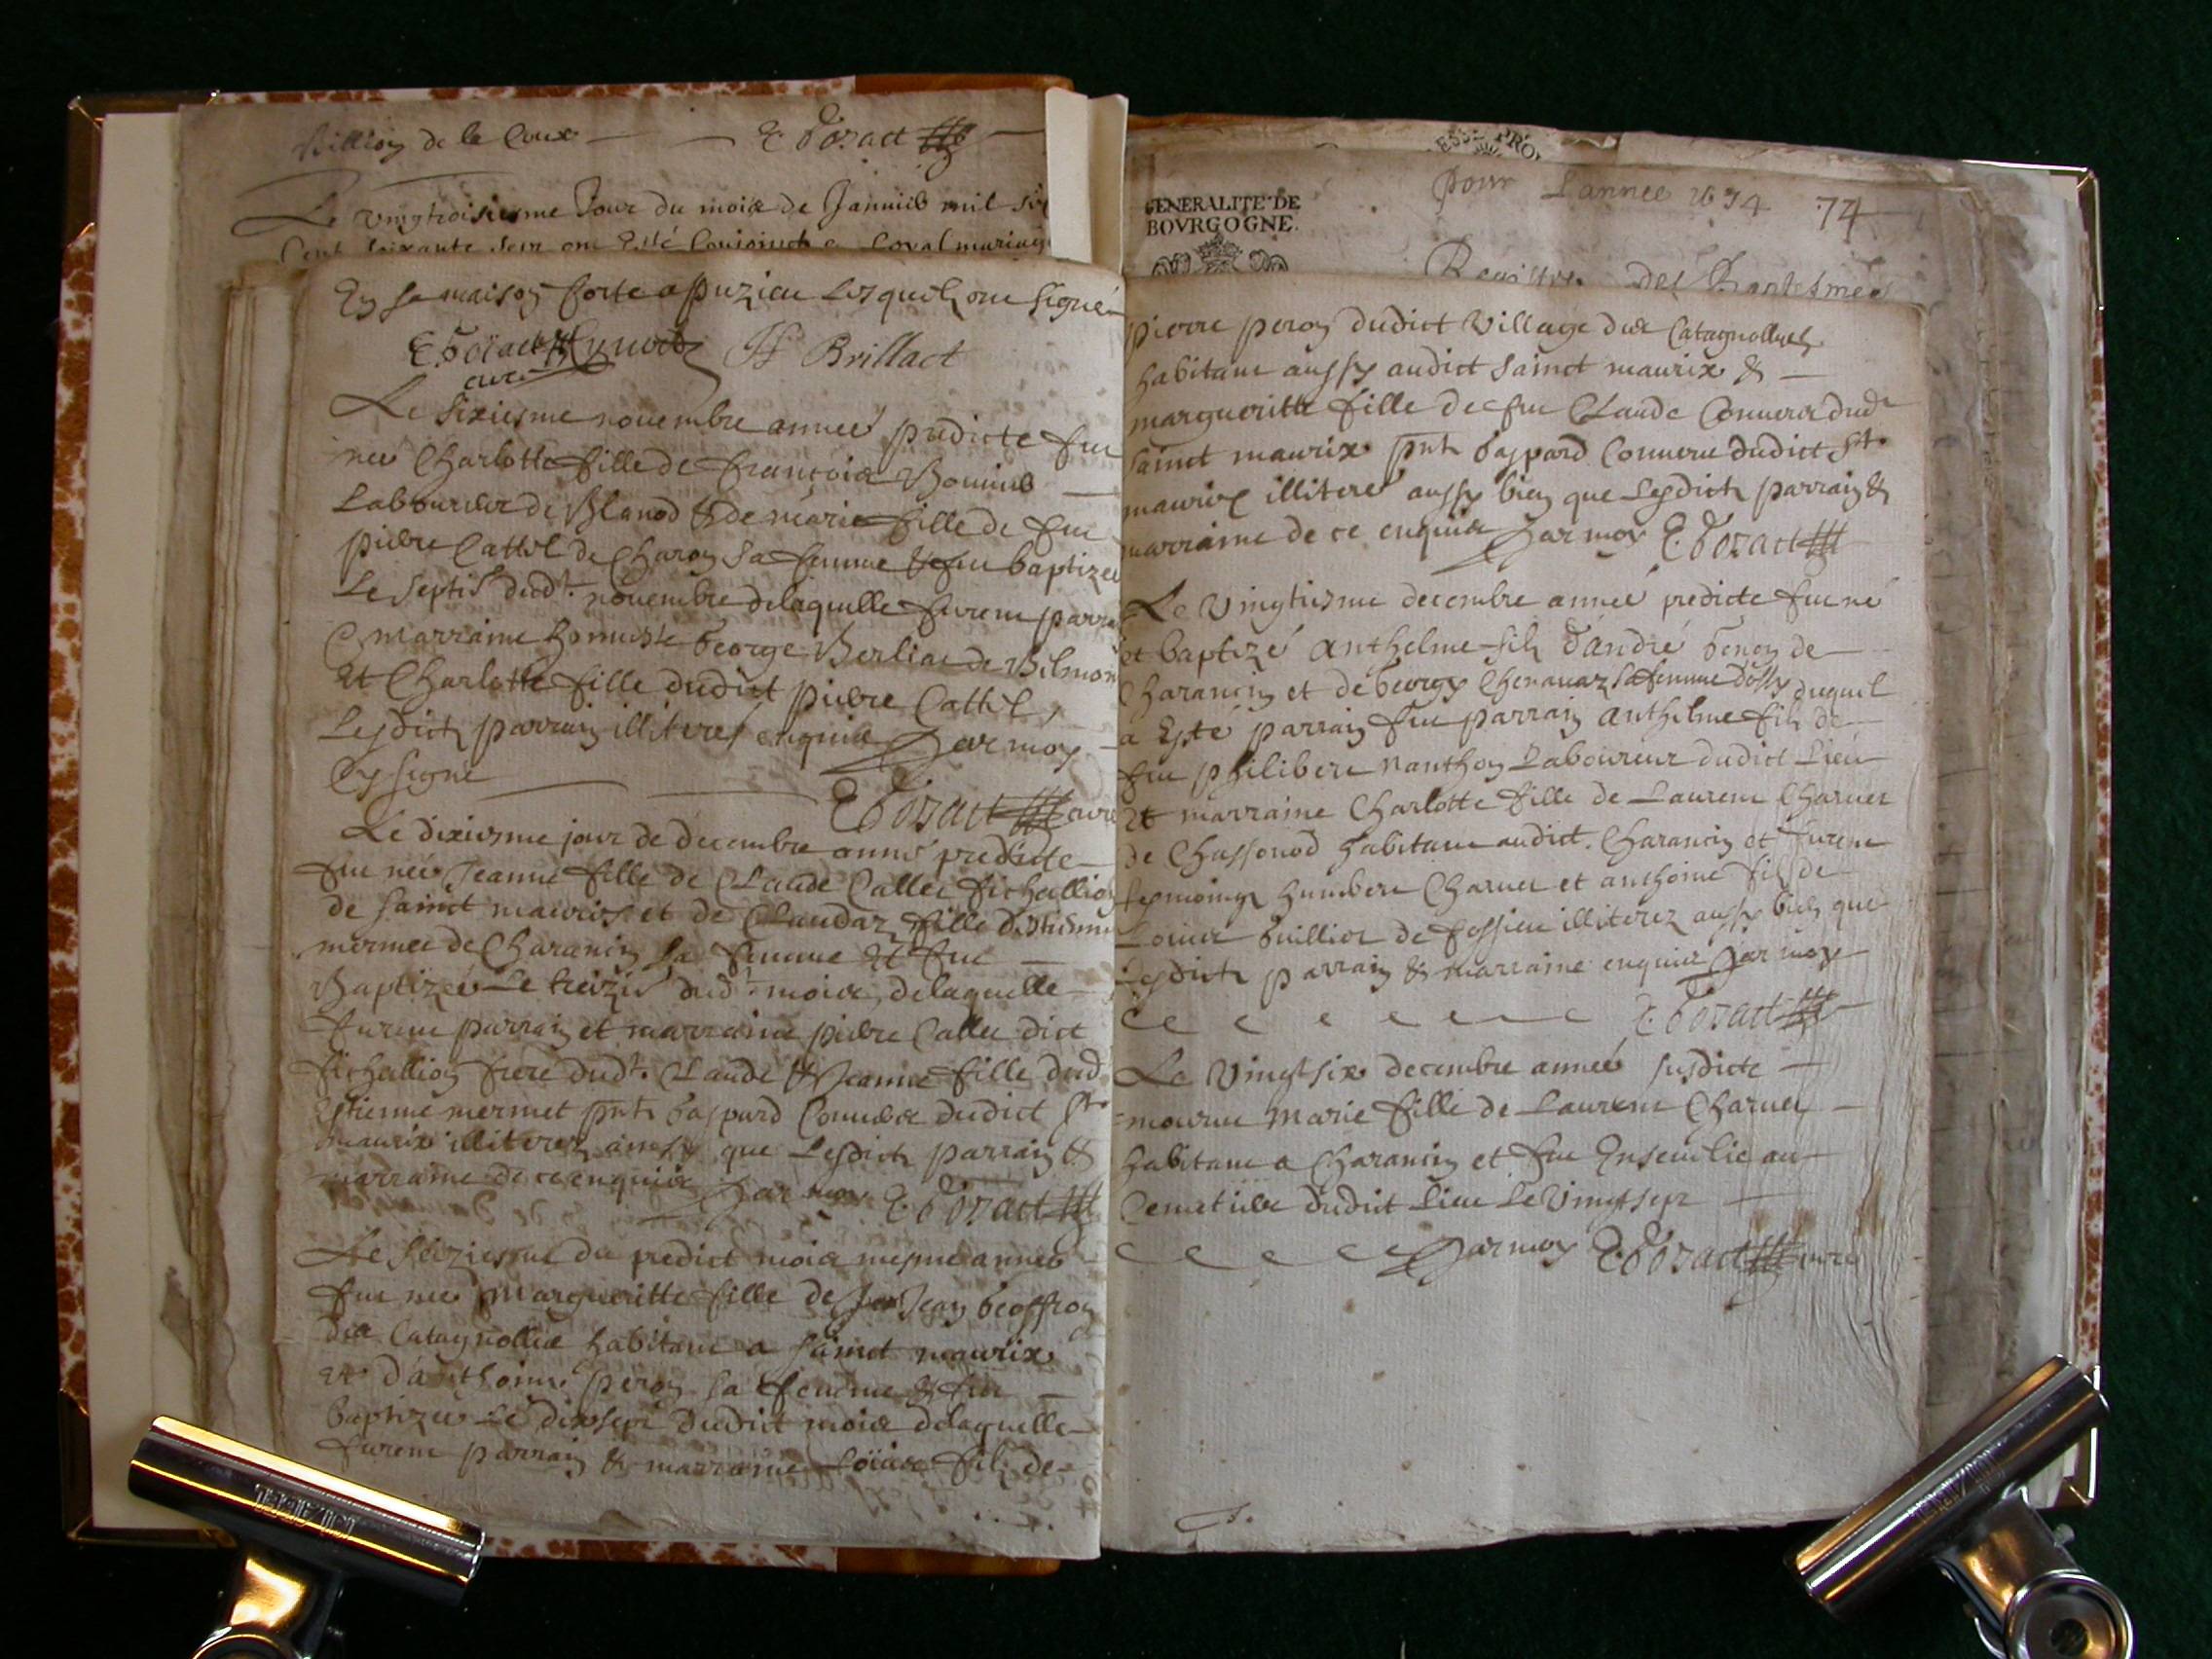 Billion de la Coux E. Bozact
Le vingtroisiesme Jour du mois de Janvier mil six
Cent soixante sept ont Esté Conjoinct e Loyal mariage
En sa maison forte a Puzieu Lesquelz ont signé
E. Bozact H. Brillact
curé
Le sixiesme novembre anneé predicte fut
neé Charlotte fille de françois Bonnivd
Laboureur de Blanod & de marie fille de feu
pierre Cattil de Charon sa femme & fut baptizeé
Le septie dudt. novembre delaquelle furent parrai
& marraine honneste George Berliat de Belmon
Et Charlotte fille dudict pierre Cattil,
Lesdictz parrain illiteres enquis Par moy
Cy signé
E. Bozact curé
Le dixiesme jour de decembre anné predicte
fut neé Jeanne fille de Claude Callet fichallion
de sainct mauris et de Claudaz fille d'estienne
mermet de Charancin sa femme Et fut
Baptizeé Le treizie dudt. mois, delaquelle
furent parrain et marraine pierre Callet dict
fichallion frere dudt. Claude & Jeanne fille dud
Estienne mermet pnt Gaspard Convers dudict St
maurix illiterez ainsy que Lesdictz parrain &
marraine de ce enquis Par moy E. Bozact
Le seiziesme du predict mois mesme anneé
fut neé margueritte fille de Jean Geoffroy
des Catagnolles habitant a sainct maurix
et d'anthoine peron sa femme & fut
baptizeé Le dixsept dudict mois delaquelle
furent parrain & marraine Loüis filz de
GENERALITE DE
BOVRGOGNE.
pour L'annee 1674 74
Registre des Baptesmes
pierre peron dudict Village des Catagnolles
habitant aussy audict sainct maurix &
margueritte fille de feu Claude Convers dudt
sainct maurix pnt Gaspard Convers dudict St.
maurix illiteres aussy bien que Lesdictz parrain &
marraine de ce enquis Par moy E. Bozact
Le vingtiesme decembre anneé predicte fut né
et baptizé anthelme filz d'andré Genoy de
Charancin et de Georgy Chenavaz sa femme dossy duquel
a Esté parrain fut parrain anthelme filz de
feu philibert nanthoy Laboureur dudict Lieu
Et marraine Charlotte fille de Laurent Charvet
de Chassonod habitant audict. Charancin et furent
tesmoings humbert Charvet et anthoine filz de
Louis Guillier de fossieu illiterez aussy bien que
Lesdictz parrain & marraine enquis Par moy
E. Bozact
Le Vingtsix decembre anneé susdicte
mourut marie fille de Laurent Charvet
habitant a Charancin et fut Ensevelie au
Cemetiere dudict Lieu Le Vingtsept
Par moy E. Bozact curé